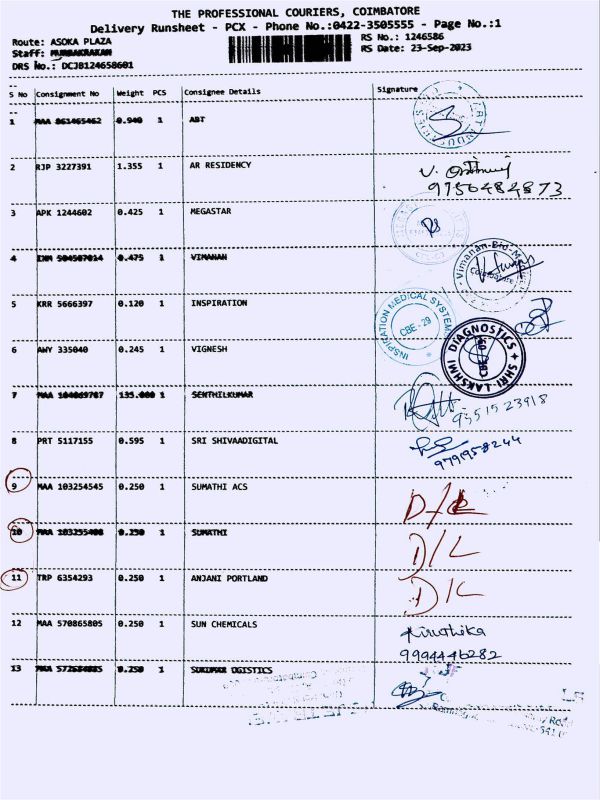 THE PROFESSIONAL COURIERS, COIMBATORE
Delivery Runsheet - PCX - Phone No.:0422-3505555 - Page No.:1
Route: ASOKA PLAZA
RS No.: 1246586
Staff:
RS Date: 23-Sep-2023
DRS No.: DCJB124658601
S No Consignment No Weight PCS Consignee Details Signature
1 MAA 861465462 0.940 1 ABT
2 RJP 3227391 1.355 1 AR RESIDENCY
9756484873
3 APK 1244602 0.425 1 MEGASTAR
4 0.475 1 VIMANAN
Vimanan-Bio-
Coimbatore
5 KRR 5666397 0.120 1 INSPIRATION
INSPIRATION MEDICAL SYSTEMS
CBE-29
6 AWY 335040 0.245 1 VIGNESH
SHRI-LAKSHMI DIAGNOSTICS
7 MAA 104069787 135.000 1 SENTHILKUMAR
9551523918
8 PRT 5117155 0.595 1 SRI SHIVAADIGITAL
9791958244
9 MAA 103254545 0.250 1 SUMATHI ACS
D/L
10 MAA 103255408 0.250 1 SUMATHI
D/L
11 TRP 6354293 0.250 1 ANJANI PORTLAND
D/L
12 MAA 570865805 0.250 1 SUN CHEMICALS
Kiruthika
9994446282
13 0.250 1